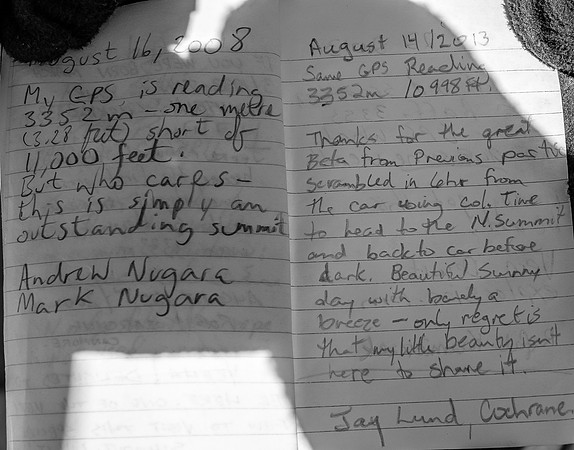 August 16, 2008
My GPS is reading
3352 m - one metre
(3.28 feet) short of
11,000 feet.
But who cares -
this is simply an
outstanding summit
Andrew Nugara
Mark Nugara
August 14/2013
Same GPS Reading
3352m 10998ft.
Thanks for the great
Beta from Previous
scrambled in 6hr from
the car using Col. Time
to head to the N. Summit
and back to car before
dark. Beautiful Sunny
day with barely a
breeze - only regret is
that my little beauty isn't
here to share it.
Jay Lund, Cochrane